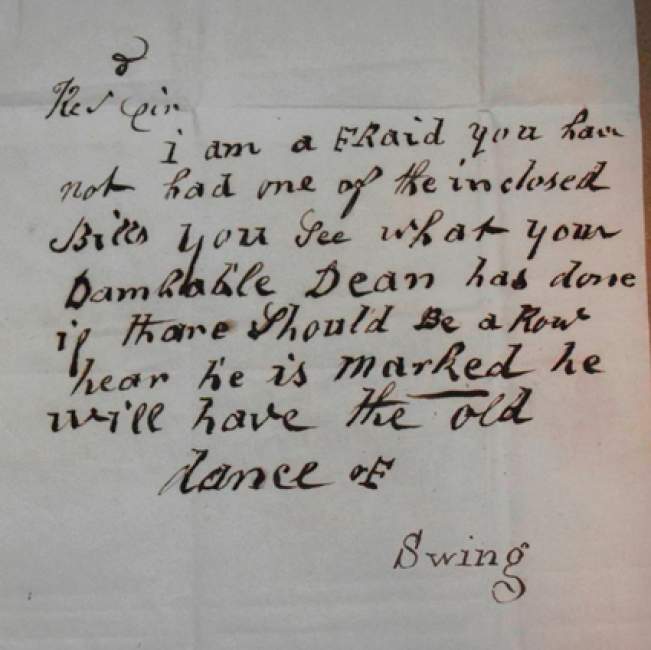 Res Sir
i am a FRaid you have
not had one of the inclosed
Bills you See what your
Damhable Dean has done
if thare Should Be a Row
hear he is marked he
will have the old
dance of
Swing